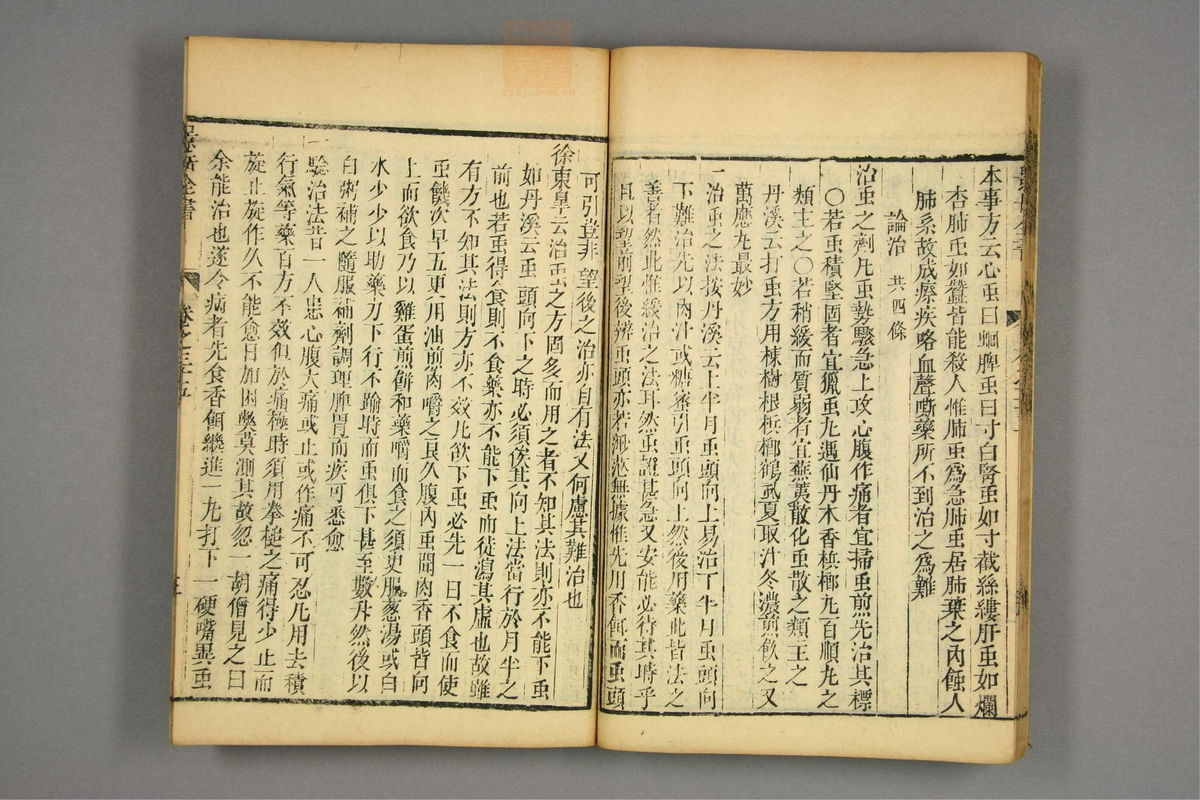 本事方云心虫曰蛔脾虫曰寸白腎虫如寸截絲縷肝虫如爛
杏肺虫如蠶皆能殺人惟肺虫爲急肺虫居肺葉之內蝕人
肺系故成瘵疾咯血聲嘶藥所不到治之爲難
論治 共四條
治虫之劑凡虫勢驟急上攻心腹作痛者宜掃虫煎先治其標
〇若虫積堅固者宜獵虫丸遇仙丹木香檳榔丸百順丸之
類主之〇若稍緩而質弱者宜蕪荑散化虫散之類主之
丹溪云打虫方用楝樹根檳榔鶴虱夏取汁冬濃煎飲之又
萬應丸最妙
一治虫之法按丹溪云上半月虫頭向上易治下半月虫頭向
下難治先以肉汁或糖蜜引虫頭向上然後用藥此皆法之
善者然此惟緩治之法耳然虫證甚急又安能必待其時乎
且以望前望後辨虫頭亦若渺茫無據惟先用香餌而虫頭
可引豈非望後之治亦自有法又何慮其難治也
徐東皐云治虫之方固多而用之者不知其法則亦不能下虫
如丹溪云虫頭向下之時必須俟其向上法當行於月半之
前也若虫得食則不食藥亦不能下虫而徒瀉其虛也故雖
有方不知其法則方亦不效凡欲下虫必先一日不食而使
虫饑次早五更用油煎肉嚼之良久腹內虫聞肉香頭皆向
上而欲食乃以雞蛋煎餅和藥嚼而食之須臾服葱湯或白
水少少以助藥力下行不踰時而虫俱下甚至數升然後以
白粥補之隨服補劑調理脾胃而疾可悉愈
一驗治法昔一人患心腹大痛或止或作痛不可忍凡用去積
行氣等藥百方不效但於痛極時須用拳搥之痛得少止而
旋止旋作久不能愈日加困獘莫測其故忽一胡僧見之曰
余能治也遂令病者先食香餌繼進一丸打下一硬嘴異虫
全書
卷之三十五